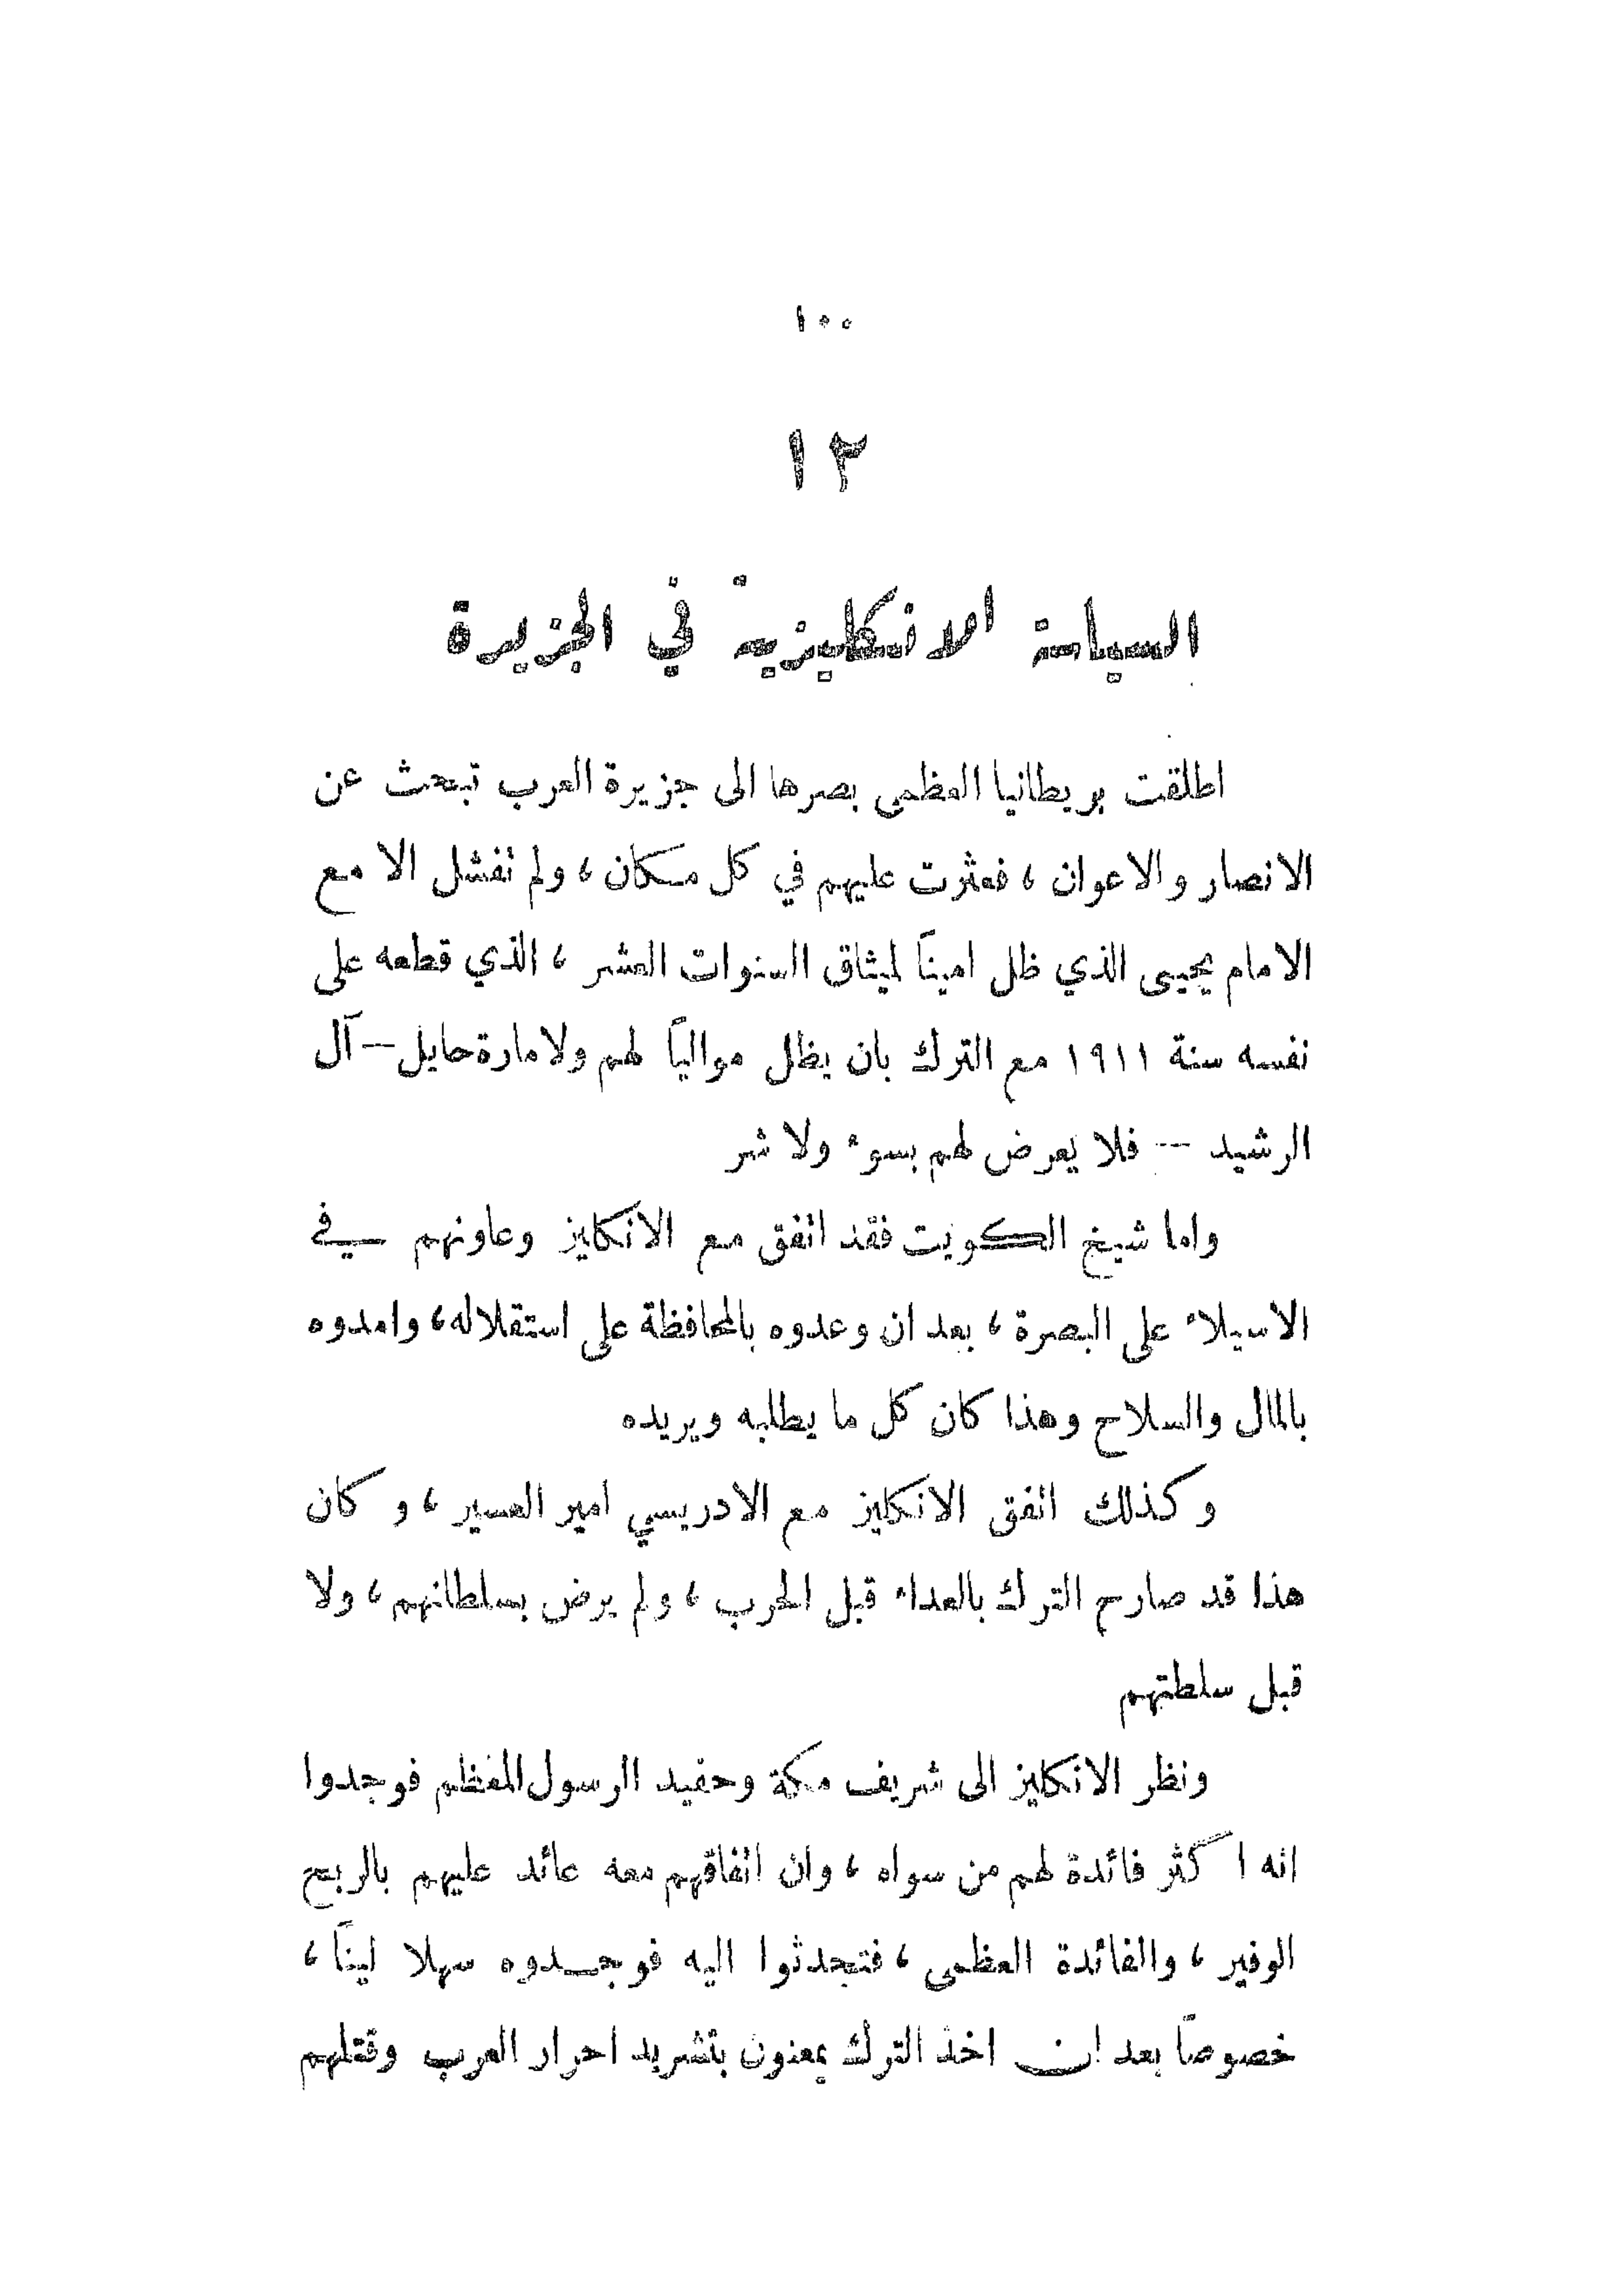 ١٠٠
١٣
السياسة الانكليزية في الجزيرة
اطلقت بريطانيا العظمى بصرها الى جزيرة العرب تبحث عن
الانصار والاعوان ، فعثرت عليهم في كل مكان ، ولم تفشل الا مع
الامام يحيى الذي ظل اميناً لميثاق السنوات العشر ، الذي قطعه على
نفسه سنة ١٩١١ مع الترك بان يظل موالياً لهم ولامارة حايل — آل
الرشيد — فلا يعرض لهم بسوء ولا شر
واما شيخ الكويت فقد اتفق مع الانكليز وعاونهم في
الاسيلاء على البصرة ، بعد ان وعدوه بالمحافظة على استقلاله ، وامدوه
بالمال والسلاح وهذا كان كل ما يطلبه ويريده
وكذلك اتفق الانكليز مع الادريسي امير العسير ، وكان
هذا قد صارح الترك بالعداء قبل الحرب ، ولم يرض بسلطانهم ، ولا
قبل سلطتهم
ونظر الانكليز الى شريف مكة وحفيد الرسول المعظم فوجدوا
انه اكثر فائدة لهم من سواه ، وان اتفاقهم معه عائد عليهم بالربح
الوفير ، والفائدة العظمى ، فتحدثوا اليه فوجدوه سهلا ليناً ،
خصوصاً بعد ان اخذ الترك يمعنون بتشريد احرار العرب وقتلهم